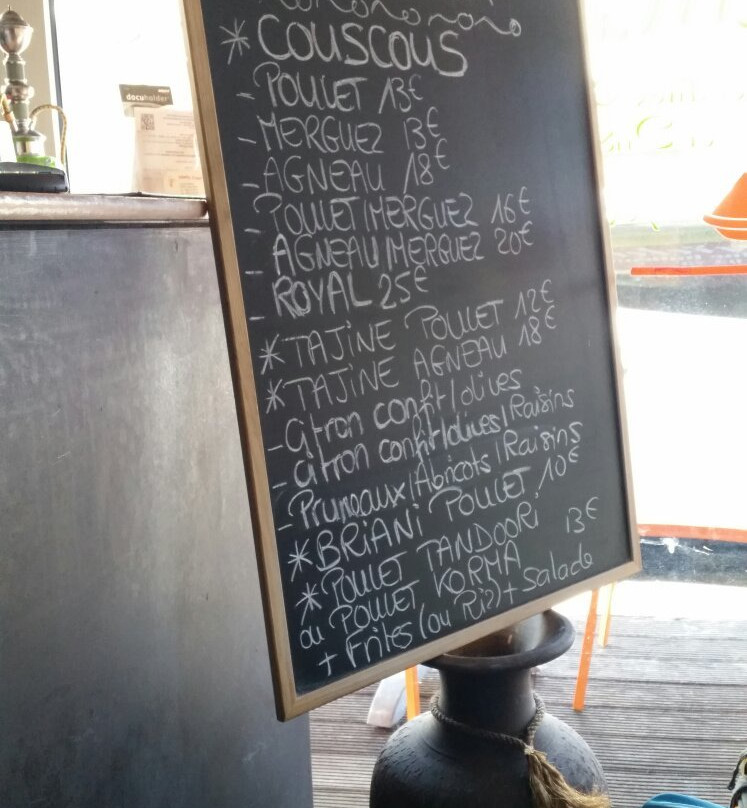 docuholder
* COUSCOUS
- POULET 13€
- MERGUEZ 13€
- AGNEAU 18€
- POULET/MERGUEZ 16€
- AGNEAU/MERGUEZ 20€
- ROYAL 25€
* TAJINE POULET 12€
* TAJINE AGNEAU 18€
- Citron confit/olives
- citron confit/olives/Raisins
- Pruneaux/Abricots/Raisins
* BRIANI POULET 10€
* POULET TANDOORI
ou POULET KORMA 13€
+ Frites (ou Riz) + Salade